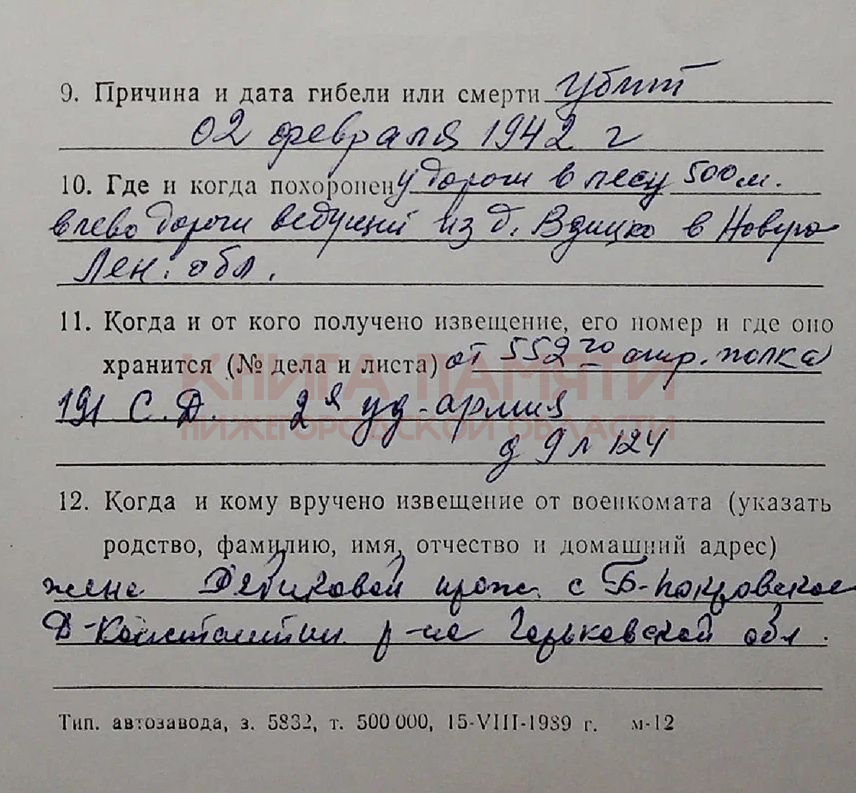 9. Причина и дата гибели или смерти убит
02 февраля 1942 г
10. Где и когда похоронен у дороги в лесу 500 м.
влево дороги ведущий из д. Вдицко в
Лен. обл.
11. Когда и от кого получено извещение, его номер и где оно
хранится (№ дела и листа) от 552го стр. полка
КНИГА ПАМЯТИ
191 С.Д. 2я уд-армия
НИЖЕГОРОДСКОЙ ОБЛАСТИ
д 9 л 124
12. Когда и кому вручено извещение от военкомата (указать
родство, фамилию, имя, отчество и домашний адрес)
жене прож. с Б-Покровское
Д-Константин р-на Горьковской обл.
Тип. автозавода, з. 5832, т. 500 000, 15-VIII-1989 г. м-12